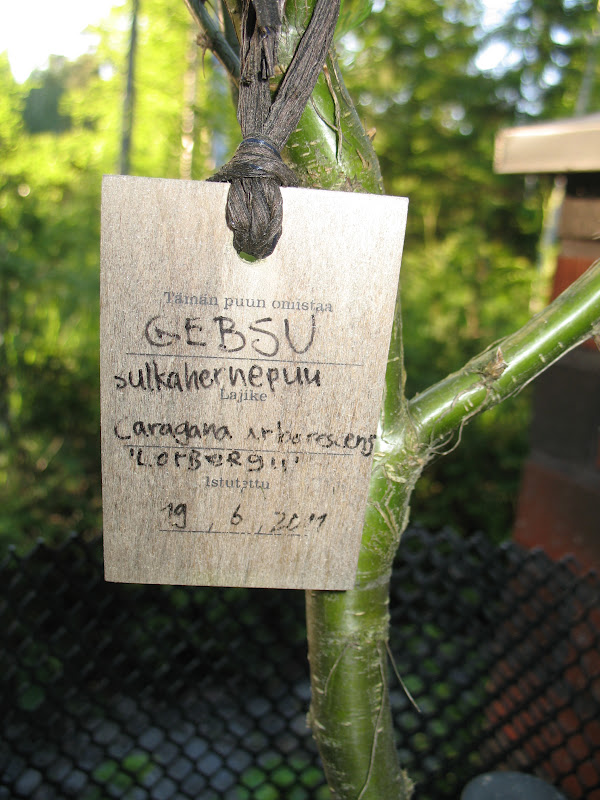 Tämän puun omistaa
GEBSU
sulkahernepuu
Lajike
Caragana arborescens
'LORBERGII'
Istutettu
19, 6, 2011